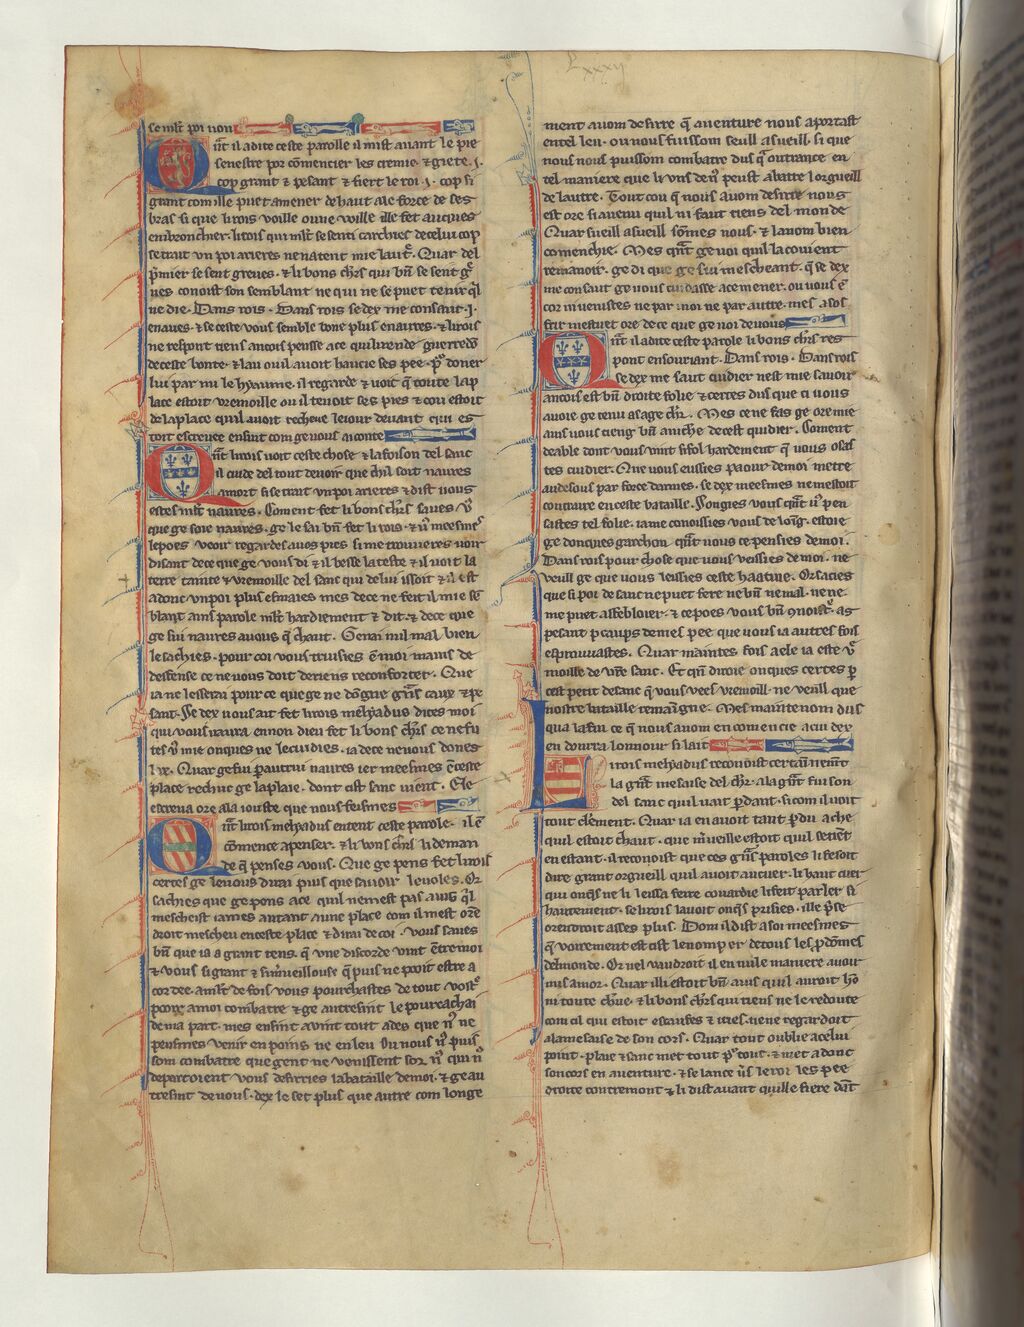 Lxxxij
se mlt poi non
Qnt il a dite ceste parolle il mist auant le pie
senestre por comencier les cremie. & giete .j.
cop grant & pesant & fiert le roi .j. cop si
grant com ille puet amener de haut a le force de ses
bras si que li rois voille ou ne wille ille fet auques
enbronchier. li rois qui mlt se senti carchies de celui cop
se trait un poi arieres ne natent mie laut͛. Quar del
pmier se sent greues. & li bons chrs qui bn se sent gͣ
ues conoist son semblant ne qui ne se puet tenir ql
ne die. Dans rois. Dans rois se dex me consaut .j.
enaues. & se ceste vous semble bone plus en aures. & li rois
ne respont riens ancois pensse a ce quil rende guerredō
de ceste bonte. & la u ou il auoit haucie ses pee. pͬ doner
lui par mi le hyaume. il regarde & uoit q toute la p
lace estoit vremoille ou il tenoit ses pies & cou estoit
de la place quil auoit recheue le iour deuant qui es
toit escreuee ensint com ge uous ai conte
Qnt li rois uoit ceste chose & la foison del sanc
il cuide del tout de uoir que chil soit naures
a mort si se trait un poi arieres & dist uous
estes mlt naures. Coment fet li bons chrs saues vͦ
que ge soie naures. ge le sai bn fet li rois. & uͦ meesmeˢ
le poes veoir regardes a uos pies si me trouueres uoir
disant de ce que ge vous di & il besse la teste & il uoit la
terre tainte & vremoille del sanc qui de lui issoit & il est
adonc un poi plus esmaies mes de ce ne fet il mie sē
blant ains parole mlt hardiement & dit. & de ce que
ge sui naures a uous q chaut. Gerai mil mal bien
le sachies. pour coi vous truisies ē moi mains de
deffense ce ne uous doit de riens reconforter. Que
ia ne lesserai pour ce que ge ne dōgne gͣns caux & pe
sant. Se dex uous aut fet li rois melyadus dites moi
qui vous naura en non dieu fet li bons chrs ce ne fu
tes vͦ mie onques ne le cuidies. ia de ce ne uous dones
lox. Quar ge fui par autrui naures ier meesmes ē ceste
place rechuc ge la plaie. dont cist sanc uient. Ele
escreua ore a la iouste que nous feismes
Qnt li rois melyadus entent ceste parole. il ē
comence a penser. & li bons chrs li deman
de q penses vous. Que ge pens fet li rois
certes ge le uous dirai puis que sauoir le uoles. Or
saches que ge pens a ce quil nemest pas auis ql
mescheist iames autant a une place com il mest ore
droit mescheu en ceste place & dirai de coi. vous saues
bn que ia a grant tens. q vne discorde vint ētre moi
& vous si grant & si mrueillouse q puis ne pooit estre a
cordee. a mlt de fois vous pourchastes de tout vostͬ
pooir a moi combatre & ge autresint le poureachai
de ma part. mes ensint auint tout ades que nͦ ne
peusmes venir en poins ne en leu ou nous nͦ puis
som combatre que gent ne venissent sor nͦ qui nͦ
departoient vous desirries la bataille de moi. & ge au
tresint de uous. dex le set plus que autre com longe
ment auom desirre q auenture nous aportast
en tel leu. ou nous fuissom seull a sueill. si que
nous nous puissom combatre dus q a outrance en
tel maniere que li vns de nͦ peust abatre lorgueill
de lautre. Tout cou q nous auom desirre nous
est ore si auenu quil ni faut riens del monde
Quar sueill a sueill somes nous. & lauom bien
comenchie. Mes qnt ge uoi quil la couient
remanoir. ge di que ge sui mescheant. q se dex
me consaut ge nous cuidasse ace mener. ou uous ē
coz m uenistes ne par moi ne par autre. mes a sos
frir mestuet ore de ce que ge uoi de uous
Qnt il a dite ceste parole li bons chrs res
pont en souriant. Dans rois. Dans rois
se dex me saut cuidier nest mie sauoir
ancois est bn droite folie & certes dus que ci uous
auoie ge tenu a sage chr. Mes ce ne fas ge ore mie
ains uous tieng bn a niche de cest quidier. Coment
deable dont vous uint si fol hardement q uous osas
tes cuidier. Que uous eussies paour de moi metre
au desous par force darmes. se dex meesmes ne mestoit
contraire en ceste bataille. Songies vous qnt uͦ pen
sastes tel folie. ia me conoissies vous de loīg. estoie
ge donques garchon qnt nous ce pensies de moi.
Dans rois pour chose que uous veissies de moi. ne
veull ge que uous lessies ceste haatine. Or sacies
que si poi de sanc ne puet fere ne bn ne mal. ne ne
me puet affebloier. & ce poes vous bn 9noistͬ. as
pesant p caups de mes pee que uous ia autres fois
esprouuastes. Quar maintes fois a ele ia este vͬ
moille de vre sanc. Et qn diroie onques certes pͬ
cest petit de sanc q vous vees vremoill. ne veull que
nostre bataille remaigne. Mes maintenom dus
qua la fin ce q nous auom encomencie a cui dex
en donra lonnour si lait
Li rois melyadus reconoist certainemt
la gnt mesaise del chr. a la gnt fuison
del sanc quil uait pdant. si com il uoit
tout clerement. Quar ia en auoit tant pdu a che
quil estoit chaut. que mrueille estoit quil se tient
en estant. il reconoist que ces gͣns paroles li fesoit
dire grant orgueill quil auoit au cuer. li haut cuer
qui onqs ne li leissa fere couardie li feit parler si
hautement. se li rois lauoit onqs prisies. ille pse
orendroit asses plus. Dom il dist a soi meesmes
q voirement est cist le nomper de tous les pdomes
del monde. Or uel vaudroit il en nule maniere auoir
mis a mor. Quar illi estoit bn auis quil auroit hō
ni toute chrie. & li bons chrs qui riens ne le redoute
com cil qui estoit escaufes & iries. ne ne regardoit
a la mesaise de son cors. Quar tout oublie a celui
point. plaie & sanc met tout pͬ tout. & met adonc
son cors en auenture. & se lance uͬs le roi les pee
droite contremont & li dist auant quil le fiere dant